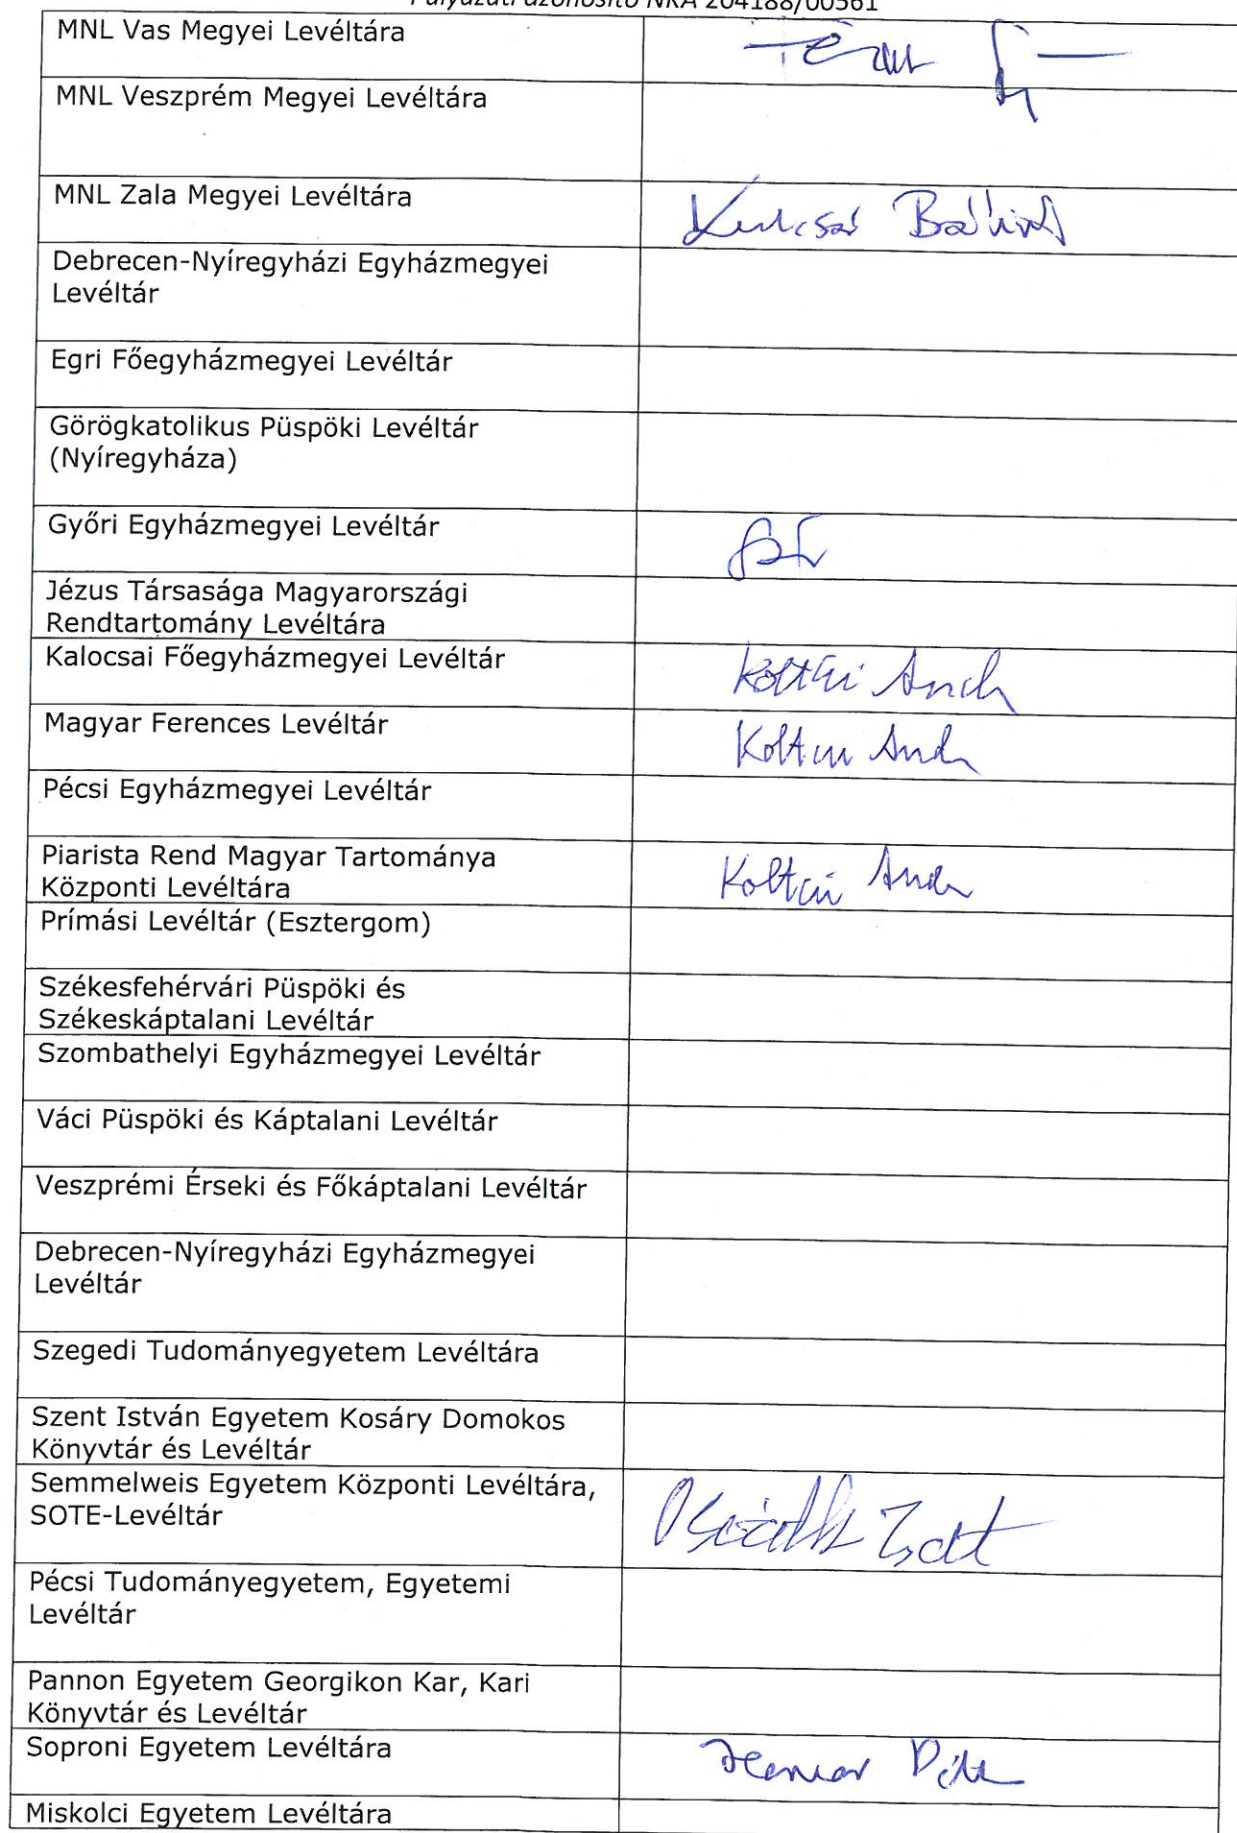 Pályázati azonosító NKA 204188/00561
MNL Vas Megyei Levéltára
MNL Veszprém Megyei Levéltára
MNL Zala Megyei Levéltára
Kulcsár Bálint
Debrecen-Nyíregyházi Egyházmegyei
Levéltár
Egri Főegyházmegyei Levéltár
Görögkatolikus Püspöki Levéltár
(Nyíregyháza)
Győri Egyházmegyei Levéltár
Jézus Társasága Magyarországi
Rendtartomány Levéltára
Kalocsai Főegyházmegyei Levéltár
Koltai
Magyar Ferences Levéltár
Koltai
Pécsi Egyházmegyei Levéltár
Piarista Rend Magyar Tartománya
Központi Levéltára
Koltai
Prímási Levéltár (Esztergom)
Székesfehérvári Püspöki és
Székeskáptalani Levéltár
Szombathelyi Egyházmegyei Levéltár
Váci Püspöki és Káptalani Levéltár
Veszprémi Érseki és Főkáptalani Levéltár
Debrecen-Nyíregyházi Egyházmegyei
Levéltár
Szegedi Tudományegyetem Levéltára
Szent István Egyetem Kosáry Domokos
Könyvtár és Levéltár
Semmelweis Egyetem Központi Levéltára,
SOTE-Levéltár
Pécsi Tudományegyetem, Egyetemi
Levéltár
Pannon Egyetem Georgikon Kar, Kari
Könyvtár és Levéltár
Soproni Egyetem Levéltára
Miskolci Egyetem Levéltára